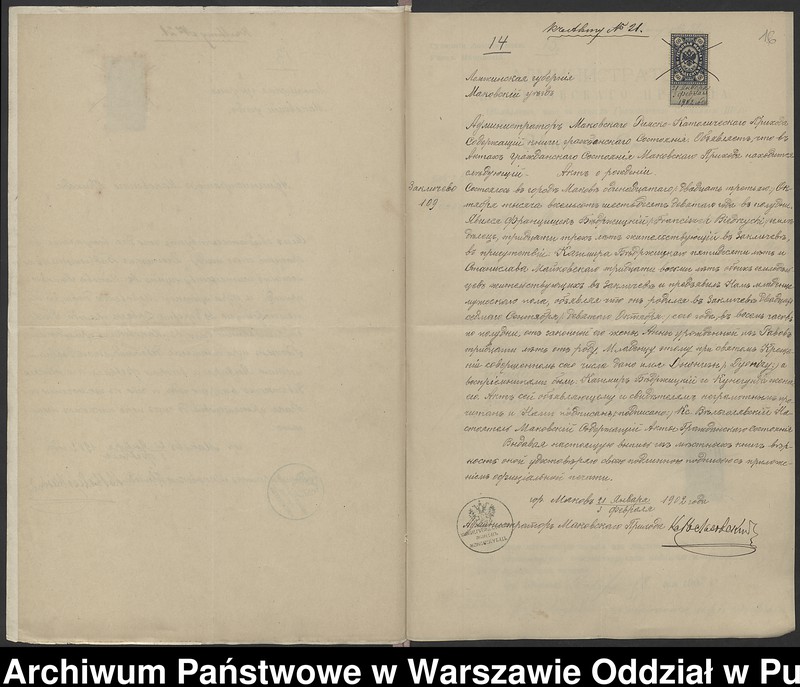 Къ Акту № 21.
14
16
Ломжинская губернія
Маковскій уѣздъ
21 января
3 февраля
1902 года
Администраторъ Маковскаго Римско-Католическаго Прихода
Содержащій книги гражданскаго Состоянія. Объявляетъ, что въ
Актахъ гражданскаго Состоянія Маковскаго Прихода находится
слѣдующій. Актъ о рожденіи.
Закличево
109
Состоялся въ городѣ Маковѣ одинадцатаго /двадцать третьяго/ Ок-
тября тысяча восемьсотъ шестьдесятъ девятаго года въ полудни.
Явился Францишекъ /Franciszek
тридцати трехъ лѣтъ жительствующій въ Закличевѣ,
въ присутствіи Казимира пятидесяти лѣтъ и
Станислава Майковскаго тридцати восьми лѣтъ обоихъ
жительствующихъ въ Закличевѣ и предъявилъ Намъ младенца
мужескаго пола, объявляя что онъ родился въ Закличевѣ двадцать
седьмаго Сентября /девятаго Октября/ сего года, въ восемь часовъ
по полудни, отъ законной его жены Анны урожденной изъ
тридцати лѣтъ отъ роду. Младенцу этому при святомъ Креще-
ніи совершенномъ сего числа дано имя а
воспріемниками были Казимиръ и Кунегунда жена
его. Актъ сей объявляющему и свидѣтелямъ неграмотнымъ про-
читанъ и Нами подписанъ /подписано/ Кс. На-
стоятель Маковскій Содержащій Акты Гражданскаго Состоянія
Выдавая настоящую выпись изъ мѣстныхъ книгъ вѣр-
ность оной удостовѣряю своею подписью съ приложе-
ніемъ оффиціальной печати.
гор. Маковъ 21 Января 1902 года
3 Февраля
Администраторъ Маковскаго Прихода
Archiwum Państwowe w Warszawie Oddział w Pu